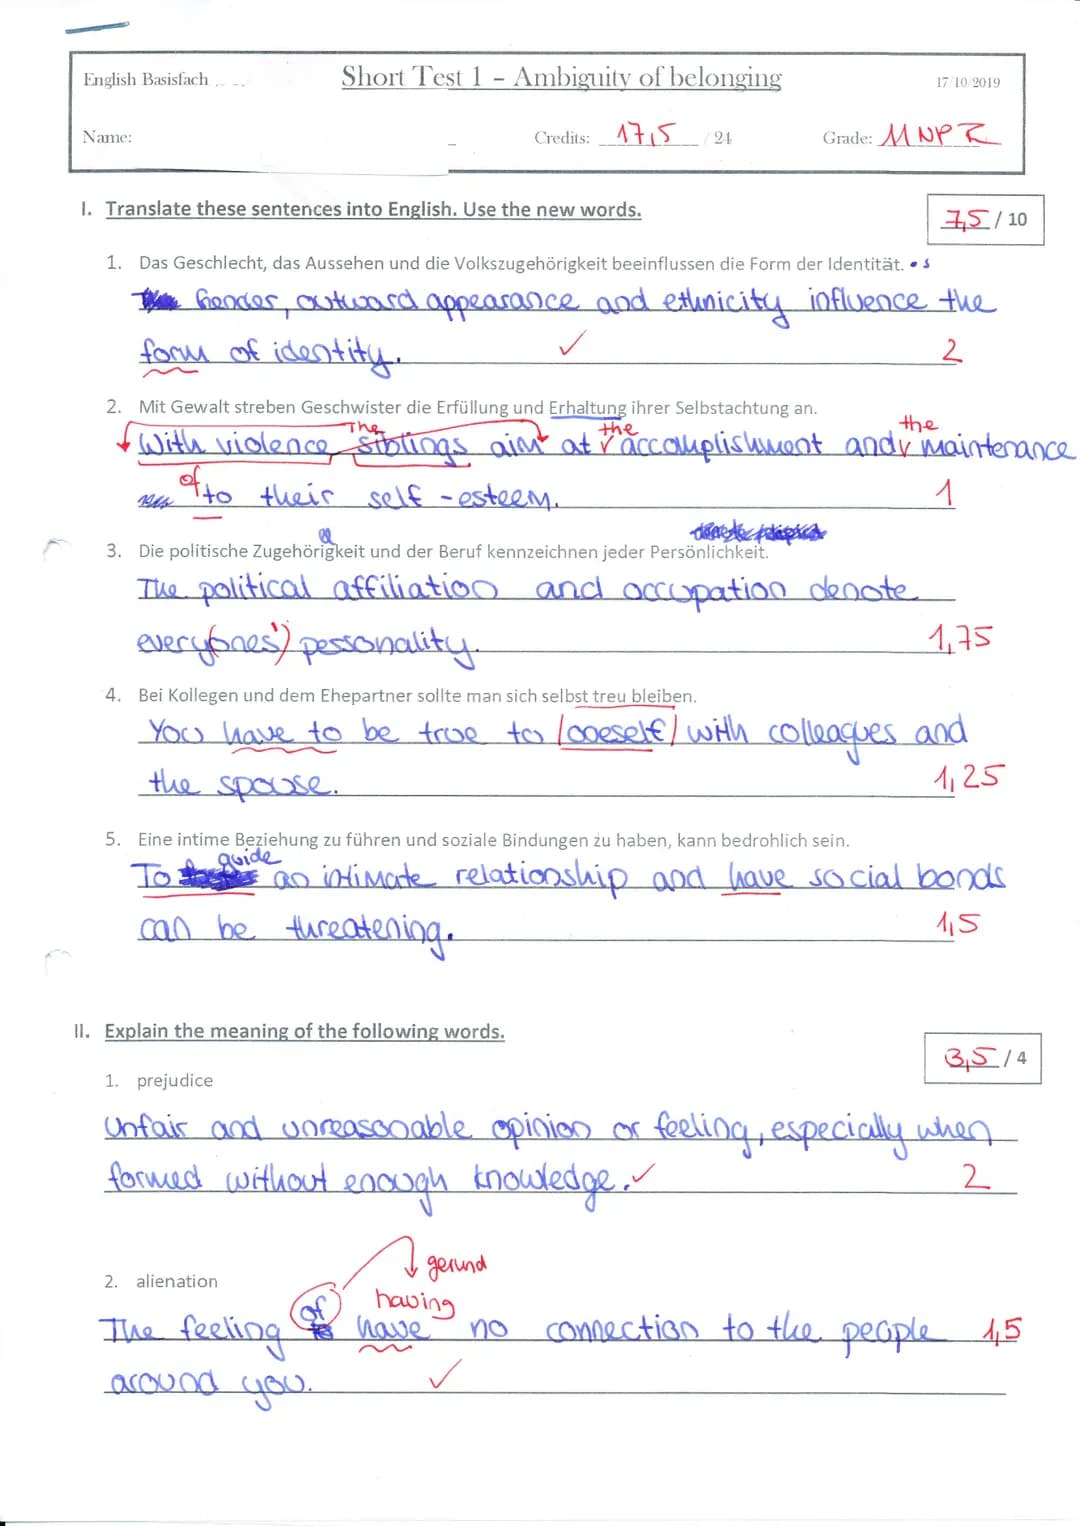 English Basisfach
Short Test 1 – Ambiguity of belonging
17/10/2019
Name:
Credits: 17,5 / 24
Grade: 11 NP
I. Translate these sentences into English. Use the new words.
7,5 / 10
1. Das Geschlecht, das Aussehen und die Volkszugehörigkeit beeinflussen die Form der Identität. • s
Gender, outward appearance and ethnicity influence the
form of identity. ✓ 2
2. Mit Gewalt streben Geschwister die Erfüllung und Erhaltung ihrer Selbstachtung an.
The the the
With violence siblings aim at accomplishment and maintenance
of
to their self-esteem. 1
3. Die politische Zugehörigkeit und der Beruf kennzeichnen jeder Persönlichkeit.
The political affiliation and occupation denote
every(ones') personality. 1,75
4. Bei Kollegen und dem Ehepartner sollte man sich selbst treu bleiben.
You have to be true to (oneself) with colleagues and
the spouse. 1,25
5. Eine intime Beziehung zu führen und soziale Bindungen zu haben, kann bedrohlich sein.
guide
To an intimate relationship and have social bonds
can be threatening. 1,5
II. Explain the meaning of the following words.
3,5 / 4
1. prejudice
Unfair and unreasonable opinion or feeling, especially when
formed without enough knowledge. ✓ 2
gerund
2. alienation
having
The feeling of have no connection to the people 1,5
around you. ✓